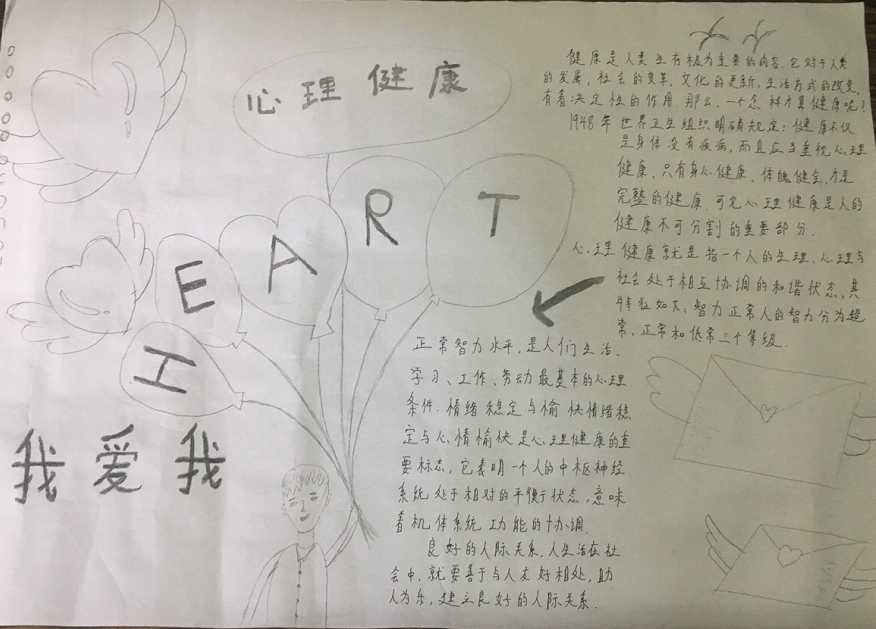 心理健康
H
E
A
R
T
我爱我
健康是人类生存极为重要的内容,它对于人类
的发展,社会的变革,文化的更新,生活方式的改变,
有着决定性的作用.那么,一个怎样才算健康呢?
1948年世界卫生组织明确规定:健康不仅
是身体没有疾病,而且应当重视心理
健康,只有身心健康、体魄健全,才是
完整的健康.可见心理健康是人的
健康不可分割的重要部分.
心理健康就是指一个人的生理、心理与
社会处于相互协调的和谐状态,其
特征如下:智力正常人的智力分为超
常、正常和低常三个等级.
正常智力水平,是人们生活、
学习、工作、劳动最基本的心理
条件.情绪稳定与愉快情绪稳
定与心情愉快是心理健康的重
要标志,它表明一个人的中枢神经
系统处于相对的平衡状态,意味
着机体系统功能的协调.
良好的人际关系,人生活在社
会中,就要善于与人友好相处,助
人为乐,建立良好的人际关系.